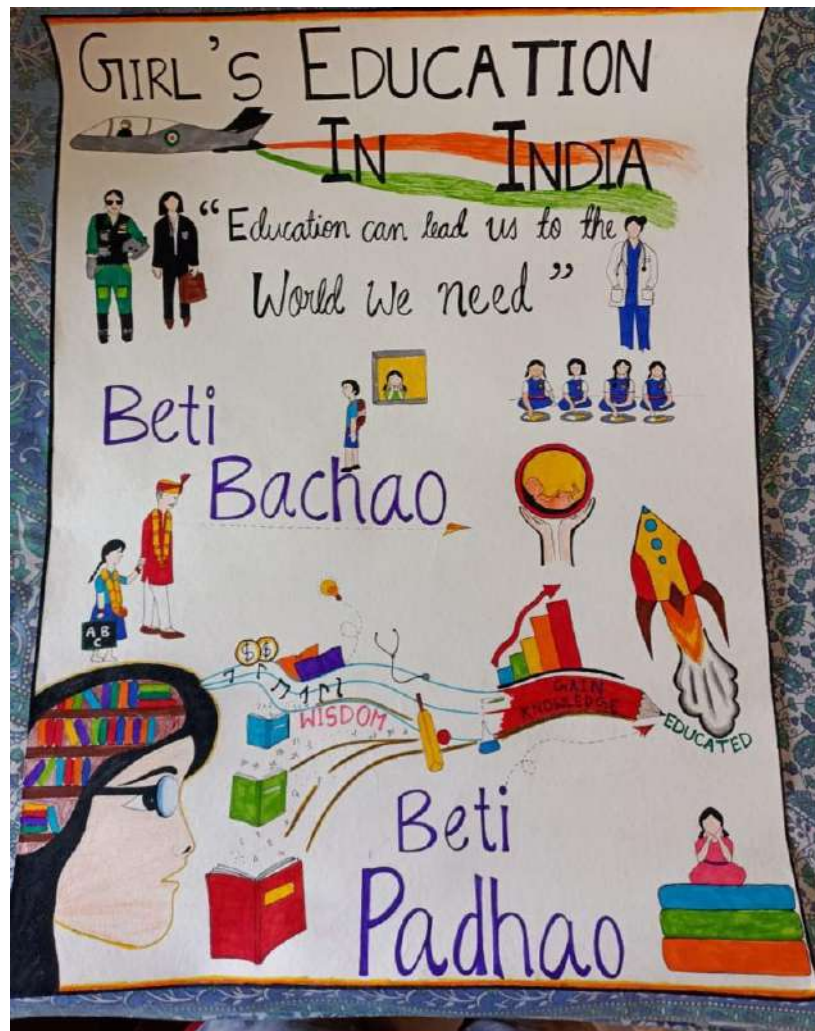 GIRL'S EDUCATION
IN INDIA
"Education can lead us to the
World We need"
Beti
Bachao
A B
C
$ $
WISDOM
GAIN
KNOWLEDGE
EDUCATED
Beti
Padhao